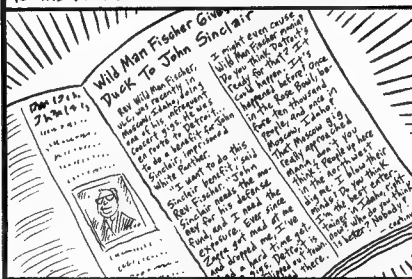 Wild Man Fischer Gives
Duck To John Sinclair
Rev Wild Man Fischer,
ULC, was recently in
Moscow, Idaho, doing
one of his infrequent
concert gigs. He was
enroute to Detroit
to do a benefit for John
Sinclair, imprisoned
White Panther.
"I want to do this
Sinclair benefit," said
Rev. Fischer. "John
Sinclair needs the mo-
ney for his defense
fund and I need the
exposure. Ever since
Zappa got mad at me
and dropped me, I've
had a hard time get-
ting gigs. Detroit is
I might even cause
Wild Man Fischer mania!
Do you think Detroit's
ready for that? It
could happen. It's
happened before. Once
in the Rose Bowl, be-
fore ten thousand
people, and once in
Moscow, Idaho."
"That Moscow gig,
really appreciated
me, man. Don't you
think? People up here
in the northwest
dig me. I blow their
minds! Do you think
I'm the best enter-
tainer in Idaho right
now? Who do you think
is better? Nobody!"